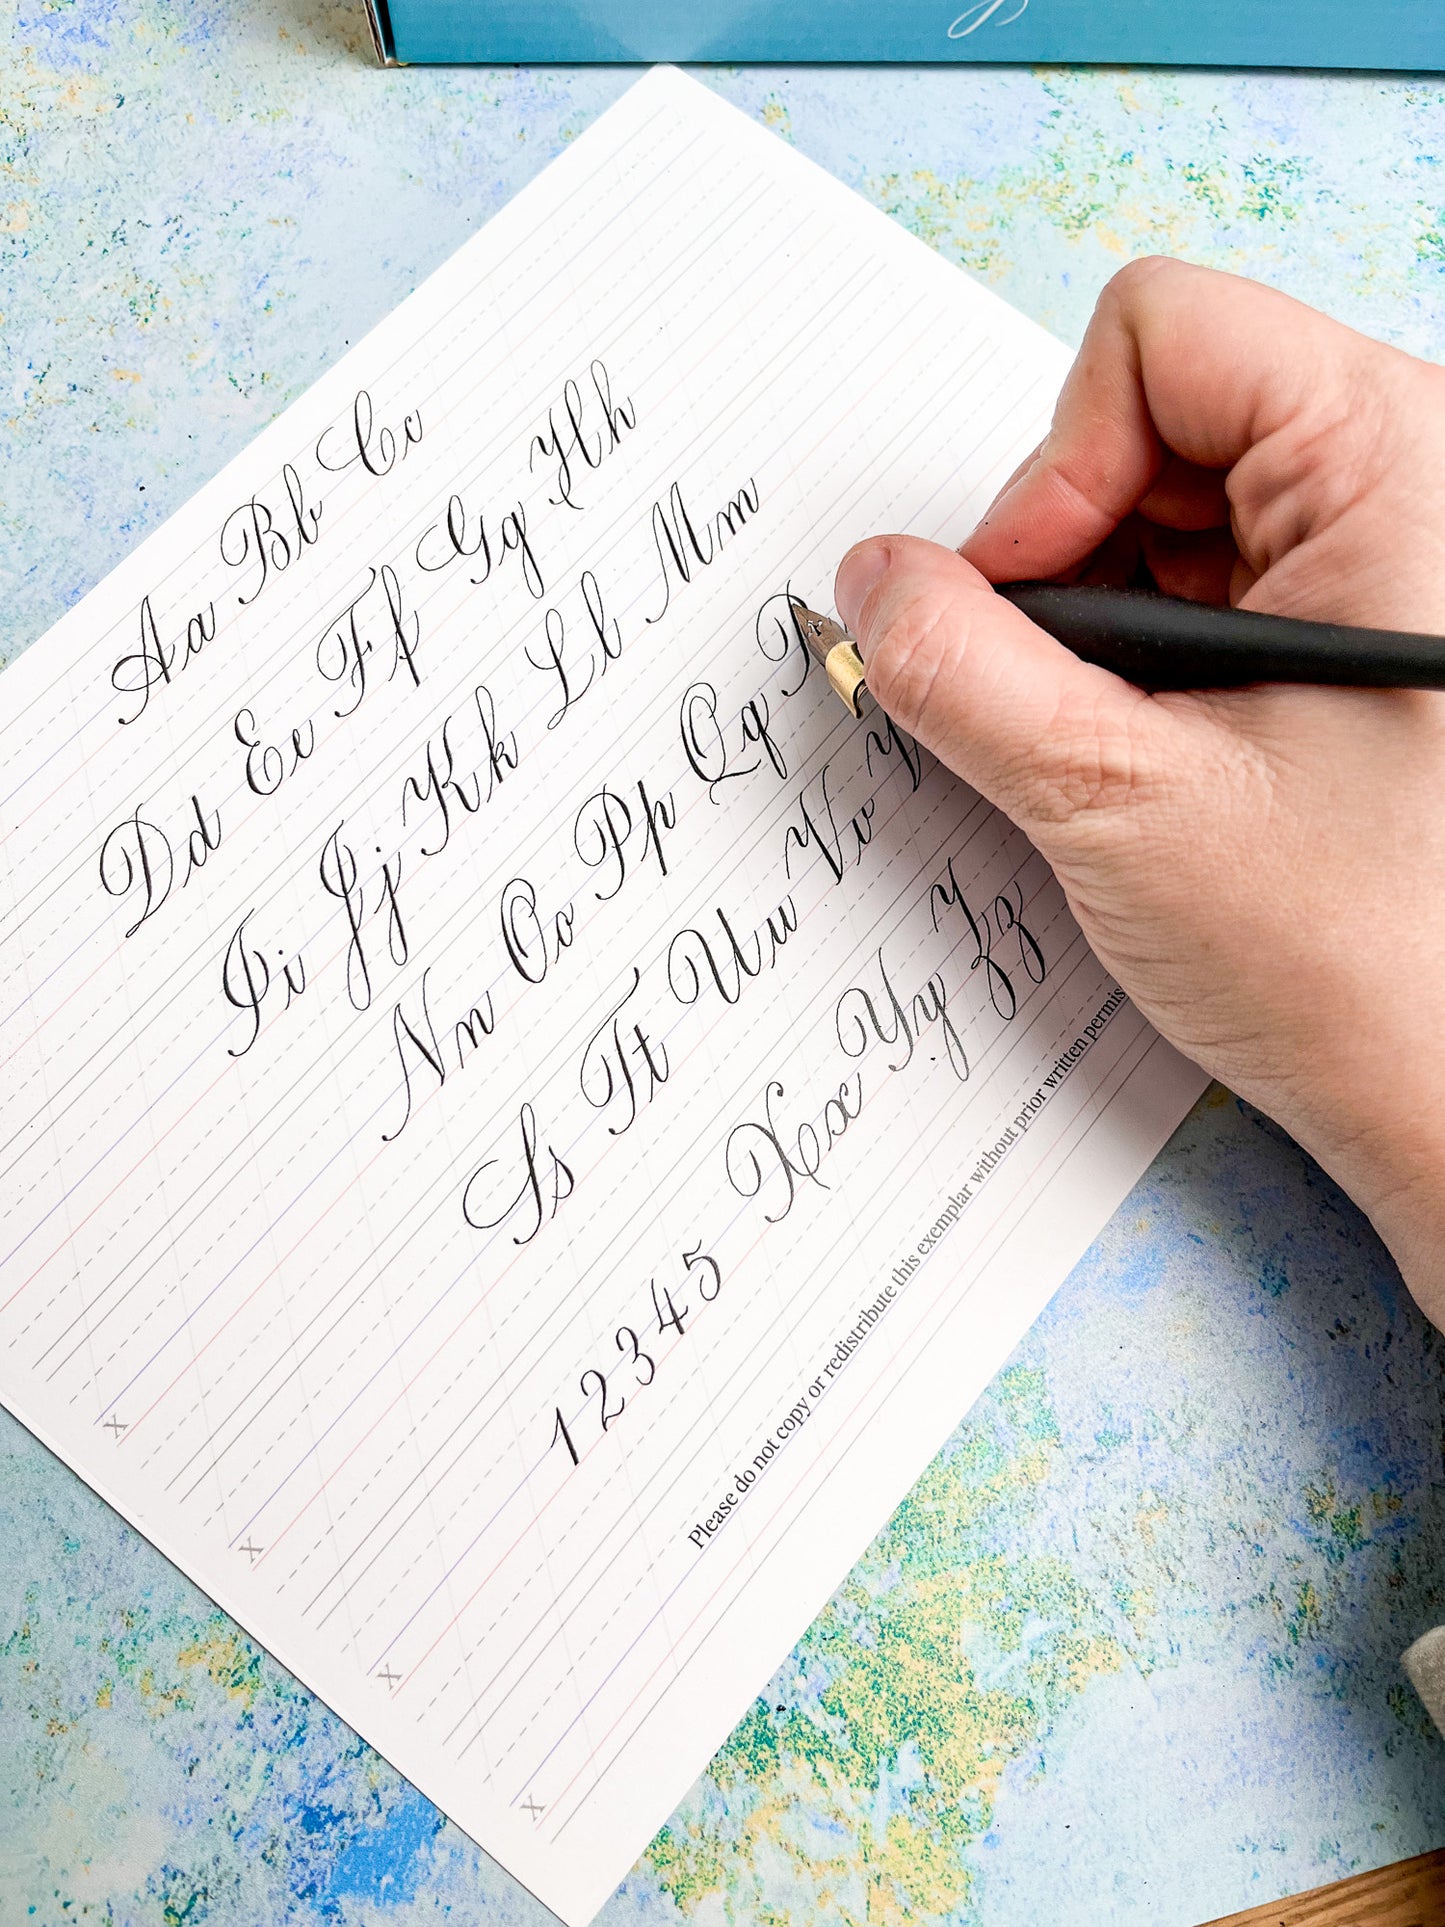 Aa Bb Cc
Dd Ee Ff Gg Hh
Ii Jj Kk Ll Mm
Nn Oo Pp Qq R
Ss Tt Uu Vv
Xx Yy Zz
1 2 3 4 5
Please do not copy or redistribute this exemplar without prior written
X
X
X
X